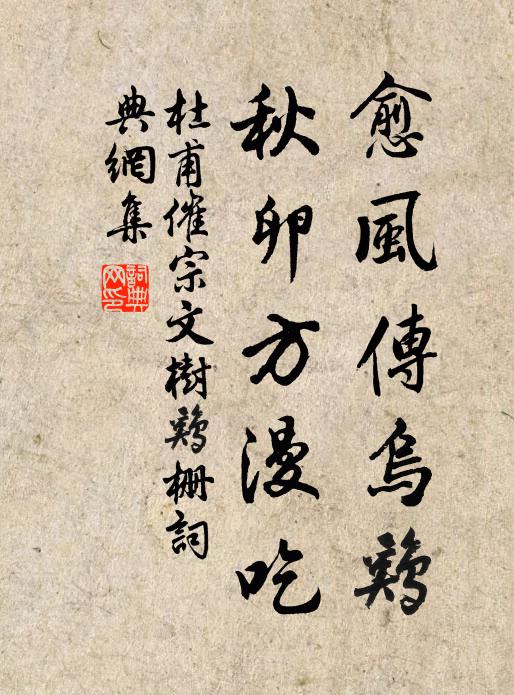 愈風傳烏鷄
秋卵方漫吃
杜甫催宗文樹鷄栅詞
典網集
詞典
网印